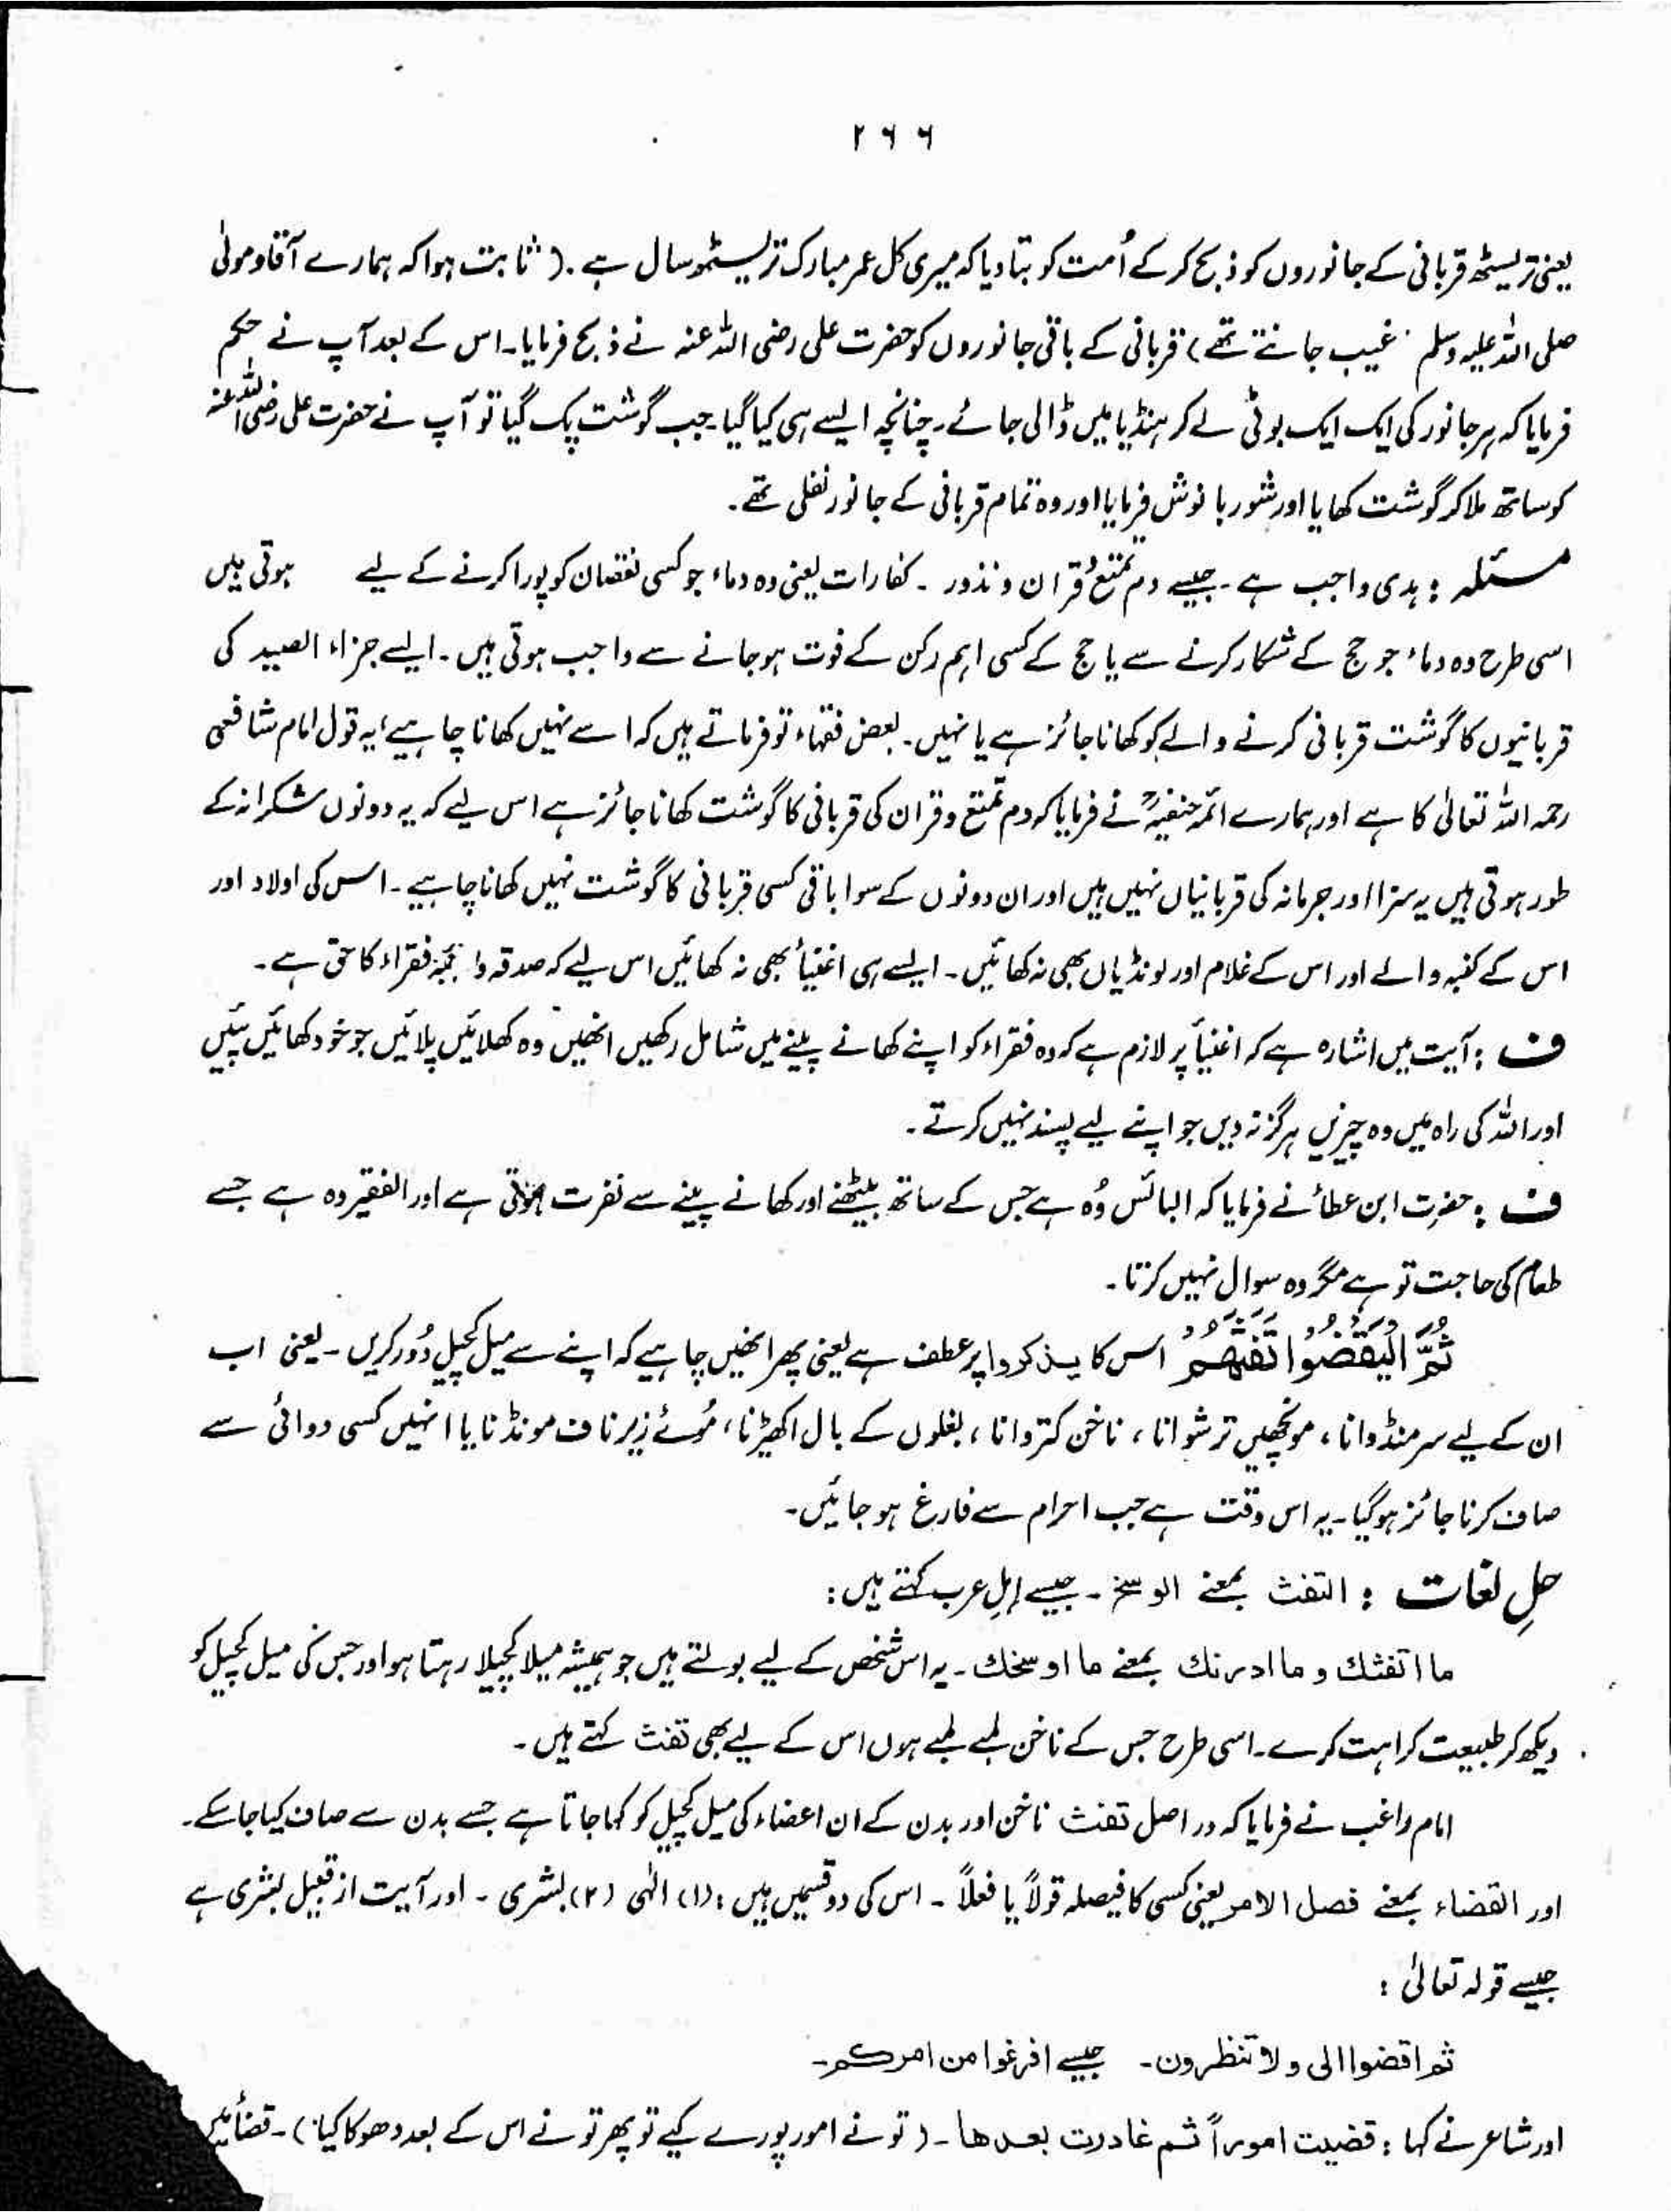 ۲۶۶
یعنی تریسٹھ قربانی کے جانوروں کو ذبح کرکے اُمت کو بتا دیا کہ میری کل عمر مبارک تریسٹھ سال ہے ۔ ( ثابت ہوا کہ ہمارے آقا و مولیٰ
صلی اللہ علیہ وسلم غیب جانتے تھے ) قربانی کے باقی جانوروں کو حضرت علی رضی اللہ عنہ نے ذبح فرمایا۔ اس کے بعد آپ نے حکم
فرمایا کہ ہر جانور کی ایک ایک بوٹی لے کر ہنڈیا میں ڈالی جائے۔ چنانچہ ایسے ہی کیا گیا۔ جب گوشت پک گیا تو آپ نے حضرت علی رضی اللہ عنہ
کو ساتھ ملا کر گوشت کھایا اور شوربا نوش فرمایا اور وہ تمام قربانی کے جانور نفلی تھے۔
مسئلہ : ہدی واجب ہے ۔ جیسے دم تمتع و قران و نذور ۔ کفارات یعنی وہ دماء جو کسی نقصان کو پورا کرنے کے لیے ہوتی ہیں
اسی طرح وہ دماء جو حج کے شکار کرنے سے یا حج کے کسی اہم رکن کے فوت ہوجانے سے واجب ہوتی ہیں۔ ایسے جزاء الصید کی
قربانیوں کا گوشت قربانی کرنے والے کو کھانا جائز ہے یا نہیں۔ بعض فقہاء تو فرماتے ہیں کہ اسے نہیں کھانا چاہیے، یہ قول امام شافعی
رحمہ اللہ تعالیٰ کا ہے اور ہمارے ائمہ حنفیہؒ نے فرمایا کہ دم تمتع و قران کی قربانی کا گوشت کھانا جائز ہے اس لیے کہ یہ دونوں شکرانہ کے
طور ہوتی ہیں یہ سزا اور جرمانہ کی قربانیاں نہیں ہیں اور ان دونوں کے سوا باقی کسی قربانی کا گوشت نہیں کھانا چاہیے ۔ اس کی اولاد اور
اس کے کنبہ والے اور اس کے غلام اور لونڈیاں بھی نہ کھائیں ۔ ایسے ہی اغنیاء بھی نہ کھائیں اس لیے کہ صدقہ واجبہ فقراء کا حق ہے ۔
ف : آیت میں اشارہ ہے کہ اغنیاء پر لازم ہے کہ وہ فقراء کو اپنے کھانے پینے میں شامل رکھیں انھیں وہ کھلائیں پلائیں جو خود کھائیں پئیں
اور اللہ کی راہ میں وہ چیزیں ہرگز نہ دیں جو اپنے لیے پسند نہیں کرتے ۔
ف : حضرت ابن عطاء نے فرمایا کہ البائس وُہ ہے جس کے ساتھ بیٹھنے اور کھانے پینے سے نفرت ہوتی ہے اور الفقیر وہ ہے جسے
طعام کی حاجت تو ہے مگر وہ سوال نہیں کرتا ۔
ثُمَّ الْیَقْضُوْا تَفَثَهُمْ اس کا یذکروا پر عطف ہے یعنی پھر انھیں چاہیے کہ اپنے سے میل کچیل دُور کریں ۔ یعنی اب
ان کے لیے سر منڈوانا ، مونچھیں ترشوانا ، ناخن کتروانا ، بغلوں کے بال اکھیڑنا ، مُوئے زیرِ ناف مونڈنا یا انہیں کسی دوائی سے
صاف کرنا جائز ہوگیا۔ یہ اس وقت ہے جب احرام سے فارغ ہو جائیں۔
حلِ لغات : التفث بمعنے الوسخ ۔ جیسے اہلِ عرب کہتے ہیں :
ما اتفثك و ما ادرنك بمعنے ما اوسخك ۔ یہ اس شخص کے لیے بولتے ہیں جو ہمیشہ میلا کچیلا رہتا ہو اور جس کی میل کچیل کو
دیکھ کر طبیعت کراہت کرے ۔ اسی طرح جس کے ناخن لمبے لمبے ہوں اس کے لیے بھی تفث کہتے ہیں ۔
امام راغب نے فرمایا کہ دراصل تفث ناخن اور بدن کے ان اعضاء کی میل کچیل کو کہا جاتا ہے جسے بدن سے صاف کیا جا سکے۔
اور القضاء بمعنے فصل الامر یعنی کسی کا فیصلہ قولاً یا فعلاً ۔ اس کی دو قسمیں ہیں : (۱) الٰہی (۲) بشری ۔ اور آیت از قبیل بشری ہے
جیسے قولہ تعالیٰ :
ثم اقضوا الی و لا تنظرون۔ جیسے افرغوا من امرکم۔
اور شاعر نے کہا : قضیت اموراً ثم غادرت بعدها ۔ ( تو نے امور پورے کیے تو پھر تو نے اس کے بعد دھوکا کیا ) ۔ قضاء میں